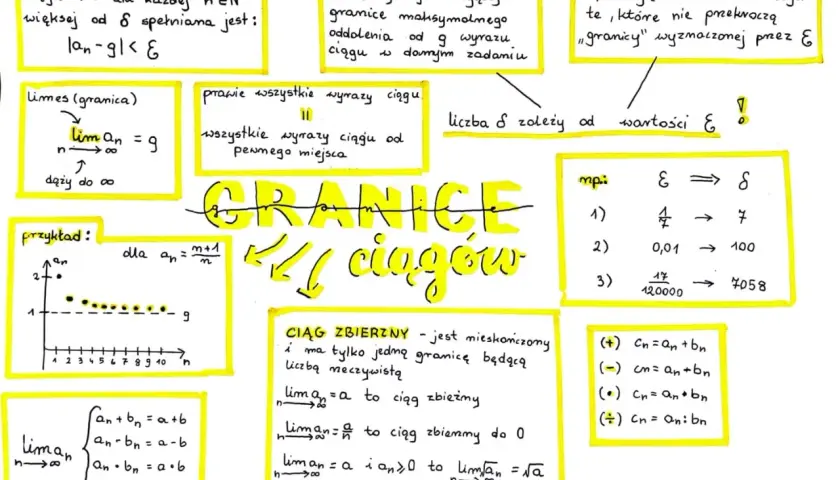 większej od δ spełniona jest:
|an - g| < ε
granice maksymalnego
oddolenia od g wyrazu
ciągu w danym zadaniu
te, które nie przekroczą
„granicy" wyznaczonej przez ε
limes (granica)
lim an = g
n → ∞
dąży do ∞
prawie wszystkie wyrazy ciągu
||
wszystkie wyrazy ciągu od
pewnego miejsca
liczba δ zależy od wartości ε !
GRANICE
granice
ciągów
np:
ε ⟹ δ
1) 1/7 → 7
2) 0,01 → 100
3) 17/120000 → 7058
przykład:
dla an = n+1/n
an
2
1
g
1 2 3 4 5 6 7 8 9 10 n
CIĄG ZBIEŻNY - jest nieskończony
i ma tylko jedną granicę będącą
liczbą rzeczywistą
lim an = a to ciąg zbieżny
n→∞
lim an = a/n to ciąg zbieżny do 0
n→∞
lim an = a i an ≥ 0 to lim √an = √a
n→∞ n→∞
(+) cn = an + bn
(-) cn = an - bn
(•) cn = an • bn
(÷) cn = an : bn
lim an
n→∞
an + bn = a + b
an - bn = a - b
an • bn = a • b